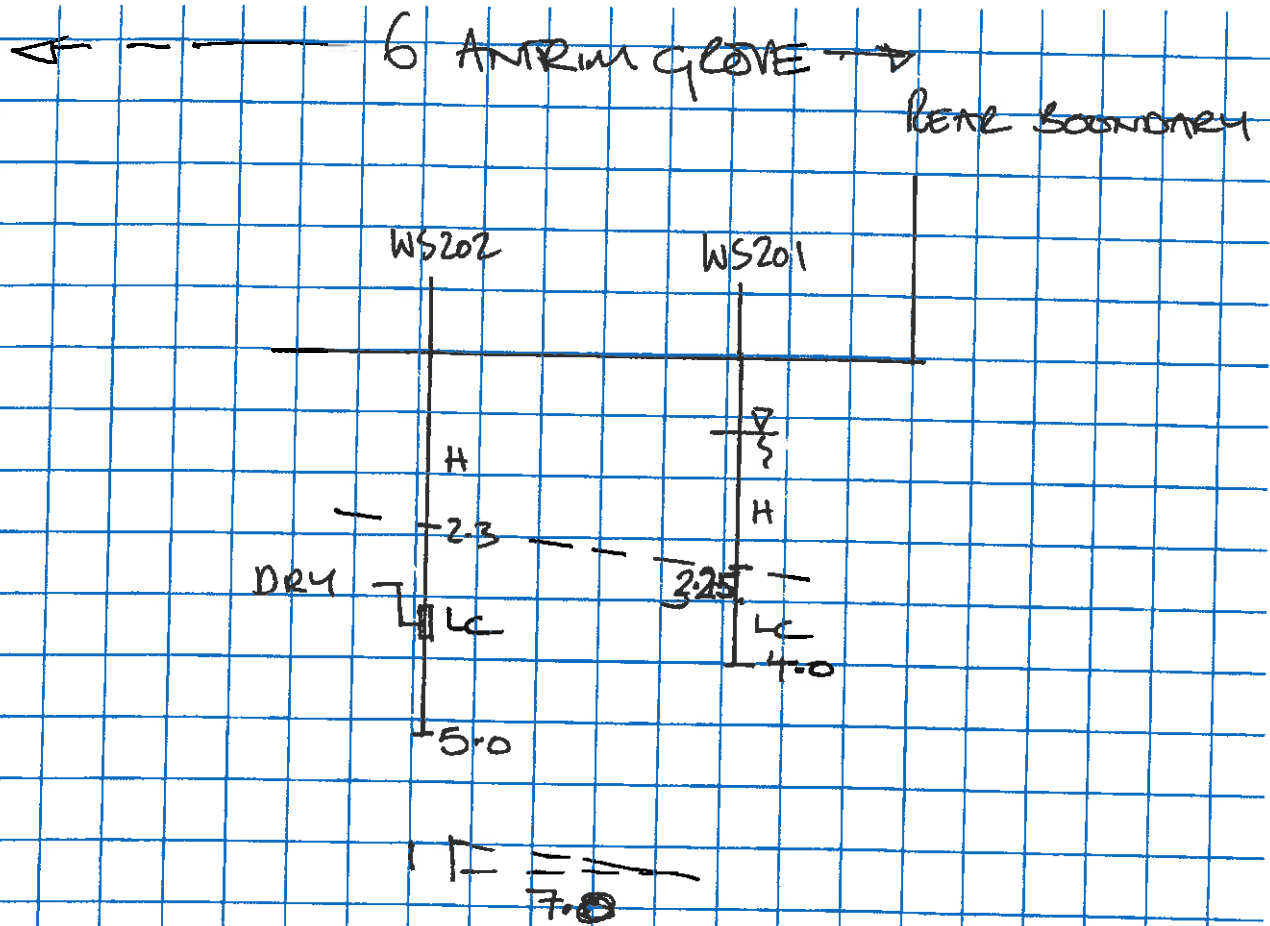 6 ANTRIM GROVE
REAR BOUNDARY
WS202
WS201
H
H
2.3
3.25
DRY
LC
LC
4.0
5.0
7.0